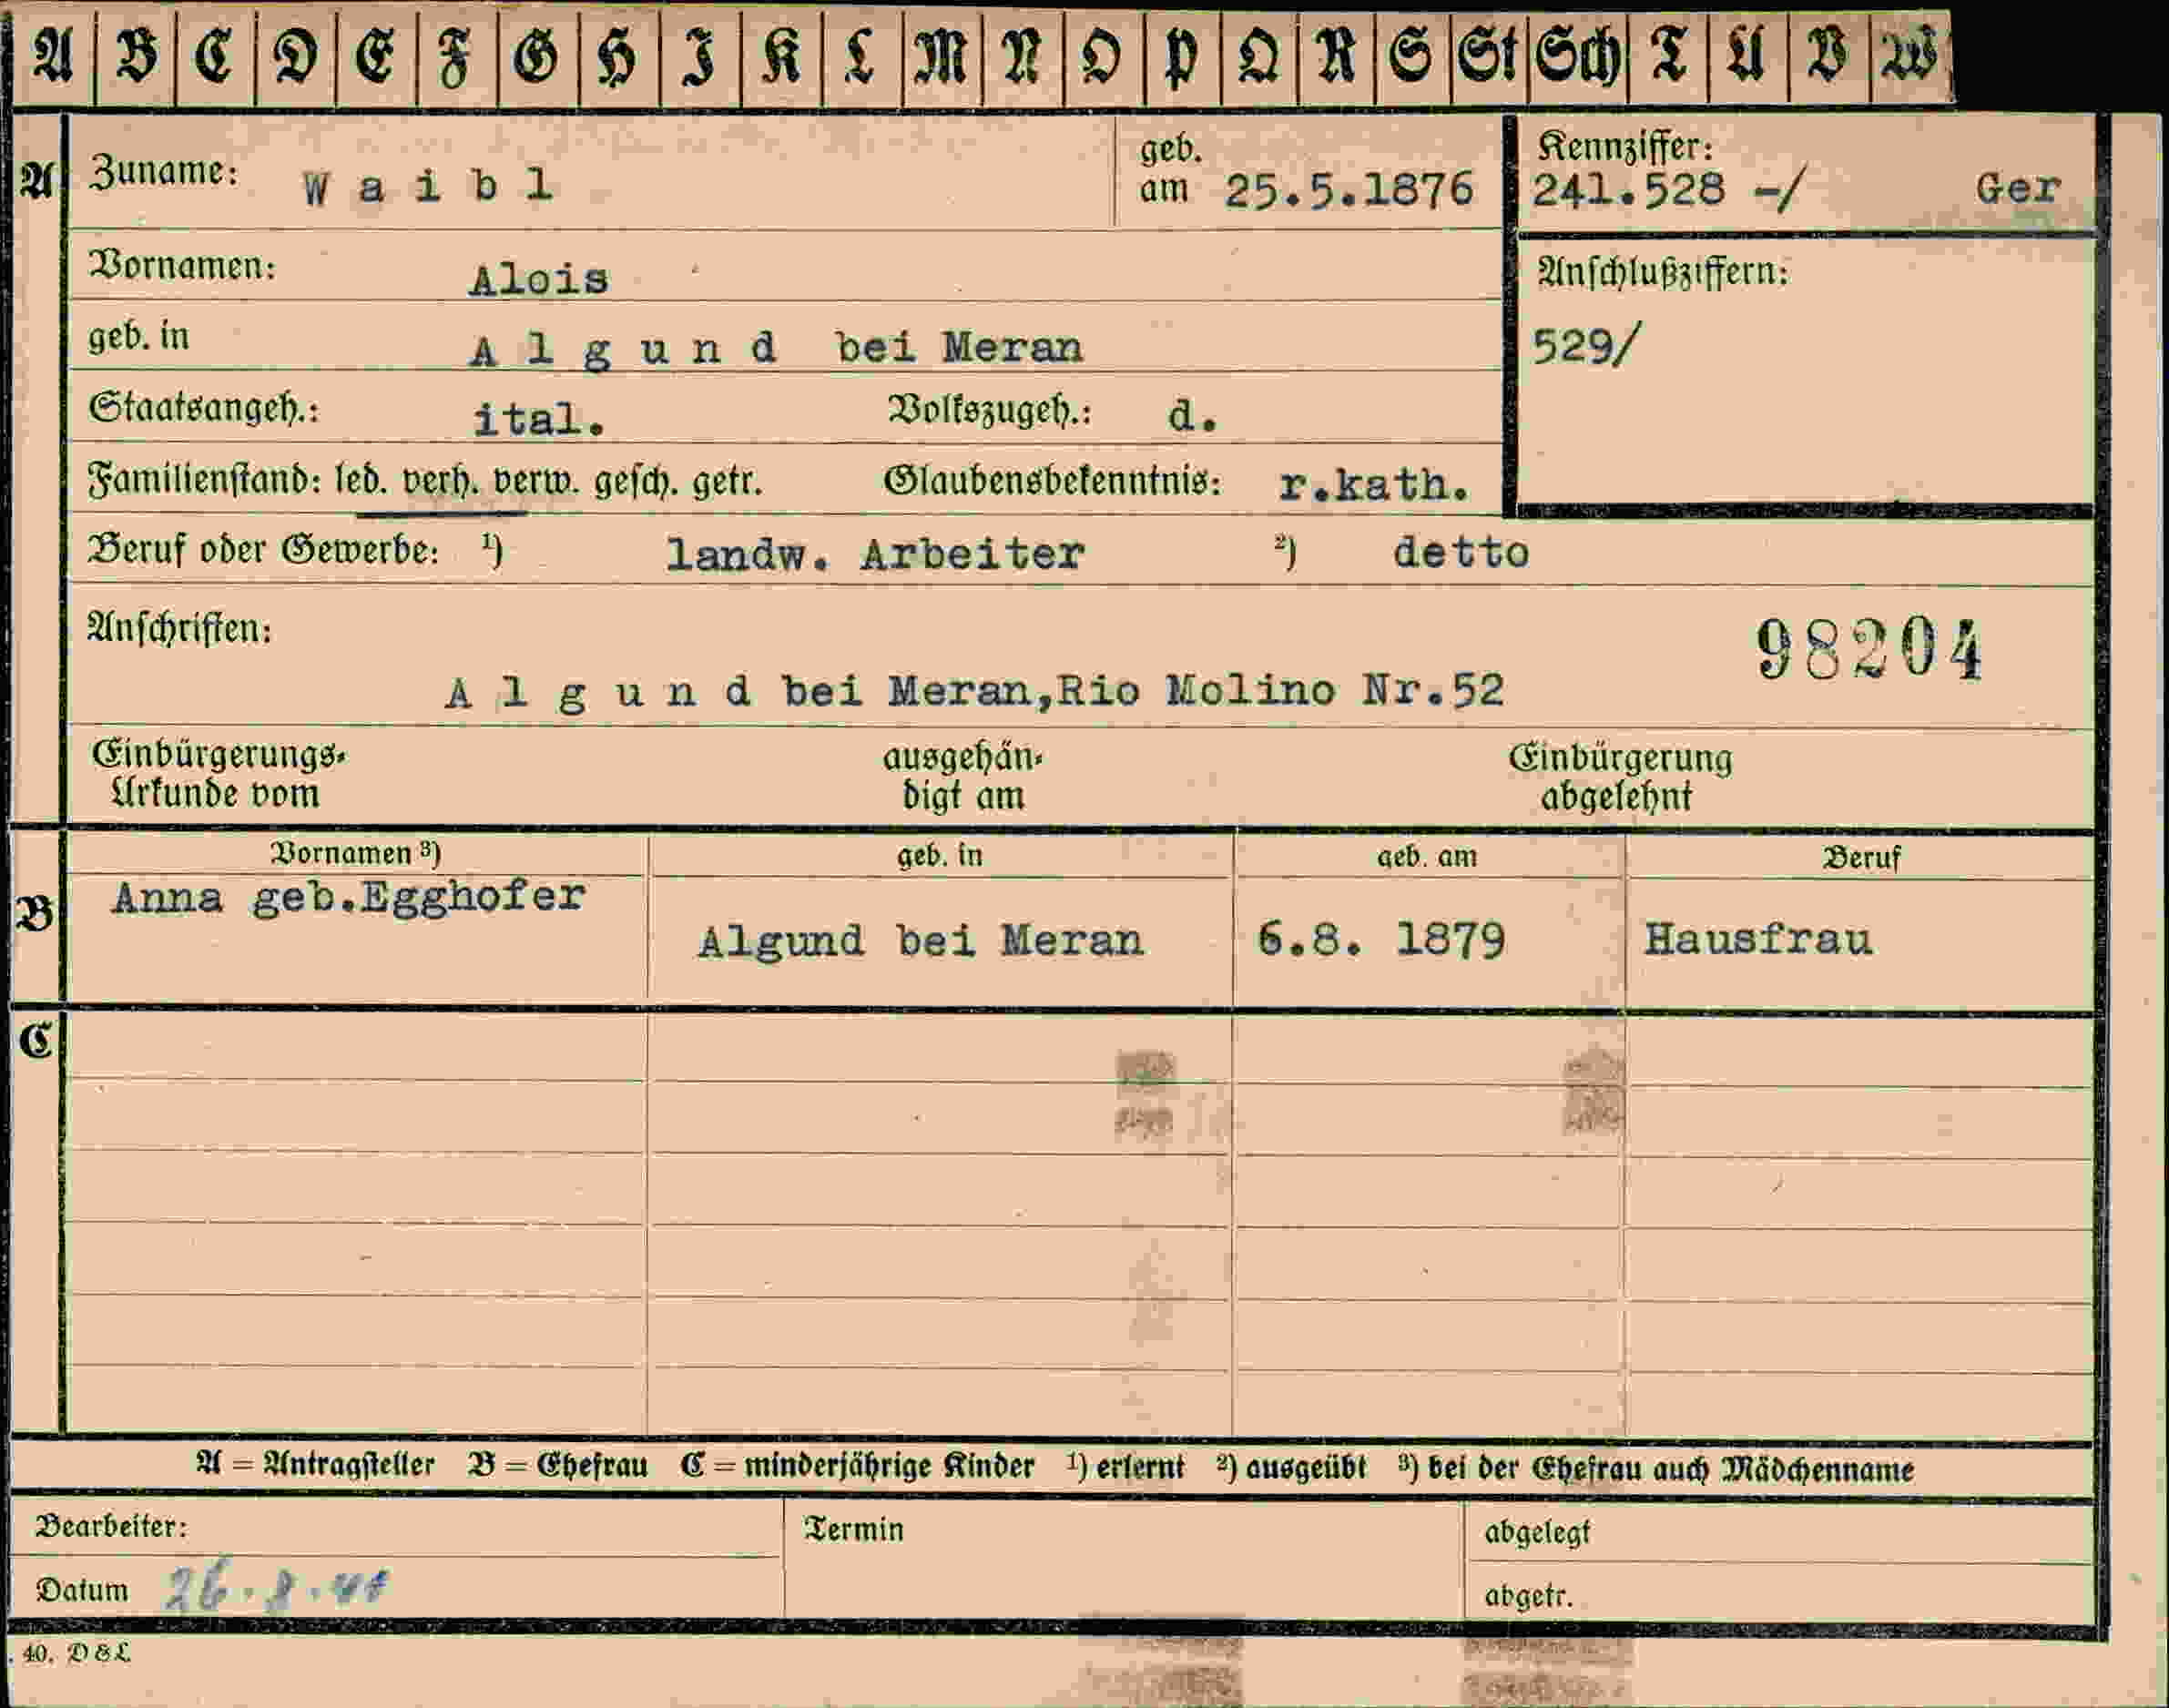 A B C D E F G H I K L M N O P Q R S St Sch T U V W
A Zuname: W a i b l geb. am 25.5.1876 Kennziffer: 241.528 -/ Ger
Vornamen: Alois Anschlußziffern:
geb. in A l g u n d bei Meran 529/
Staatsangeh.: ital. Volkszugeh.: d.
Familienstand: led. verh. verw. gesch. getr. Glaubensbekenntnis: r.kath.
Beruf oder Gewerbe: ¹) landw. Arbeiter ²) detto
Anschriften: 98204
A l g u n d bei Meran,Rio Molino Nr.52
Einbürgerungs- ausgehän- Einbürgerung
Urkunde vom digt am abgelehnt
Vornamen ³) geb. in geb. am Beruf
B Anna geb.Egghofer
Algund bei Meran 6.8. 1879 Hausfrau
C
A = Antragsteller B = Ehefrau C = minderjährige Kinder ¹) erlernt ²) ausgeübt ³) bei der Ehefrau auch Mädchenname
Bearbeiter: Termin abgelegt
Datum abgetr.
40. D & L